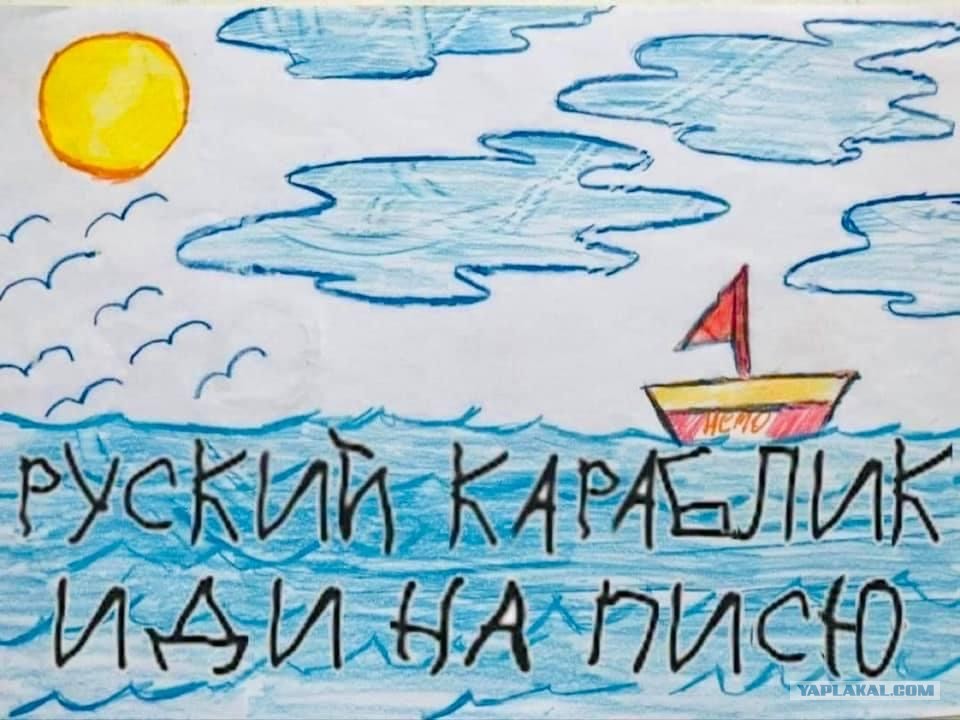 НЕМО
РУСКИЙ КАРАБЛИК
ИДИ НА ПИСЮ
YAPLAKAL.COM